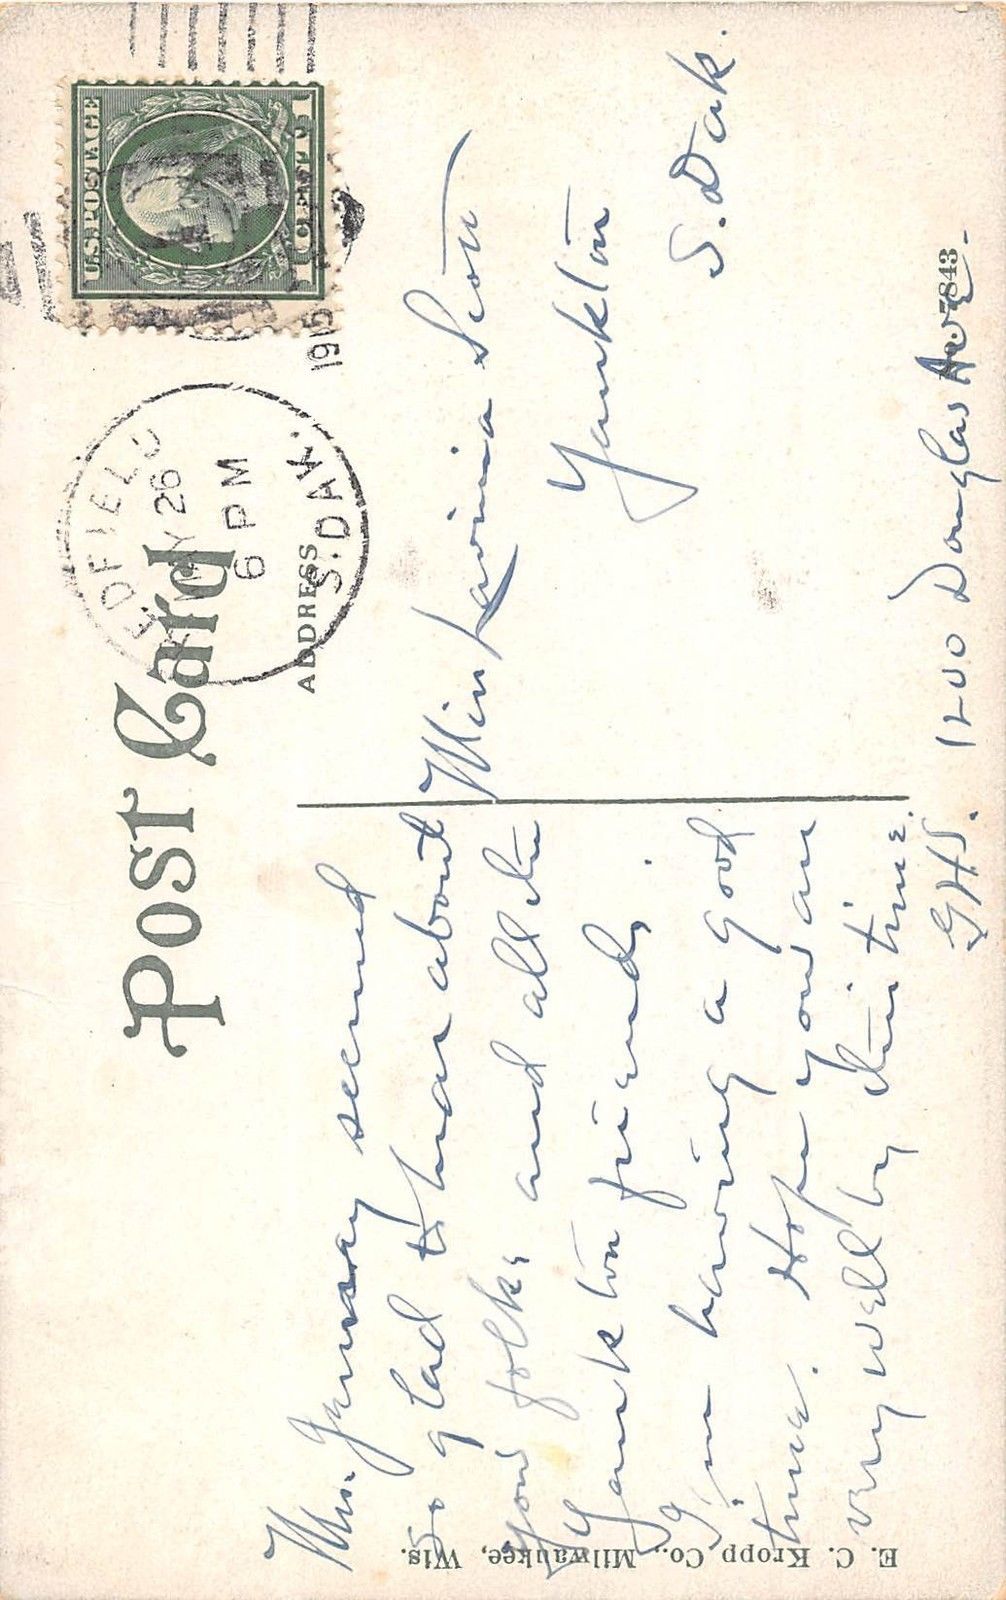 Post Card
ADDRESS
U.S. POSTAGE
REDFIELD
MAY 26
6 PM
1915
S. DAK.
Mrs. seemed
so glad to hear about
your folks and all the
Yankton friends.
I'm having a good
time. Hope you are
very well by this time.
G.H.S.
Miss Lavinia Scott
Yankton
S. Dak.
1200 Douglas Ave.
7843
E. C. Kropp Co., Milwaukee, Wis.